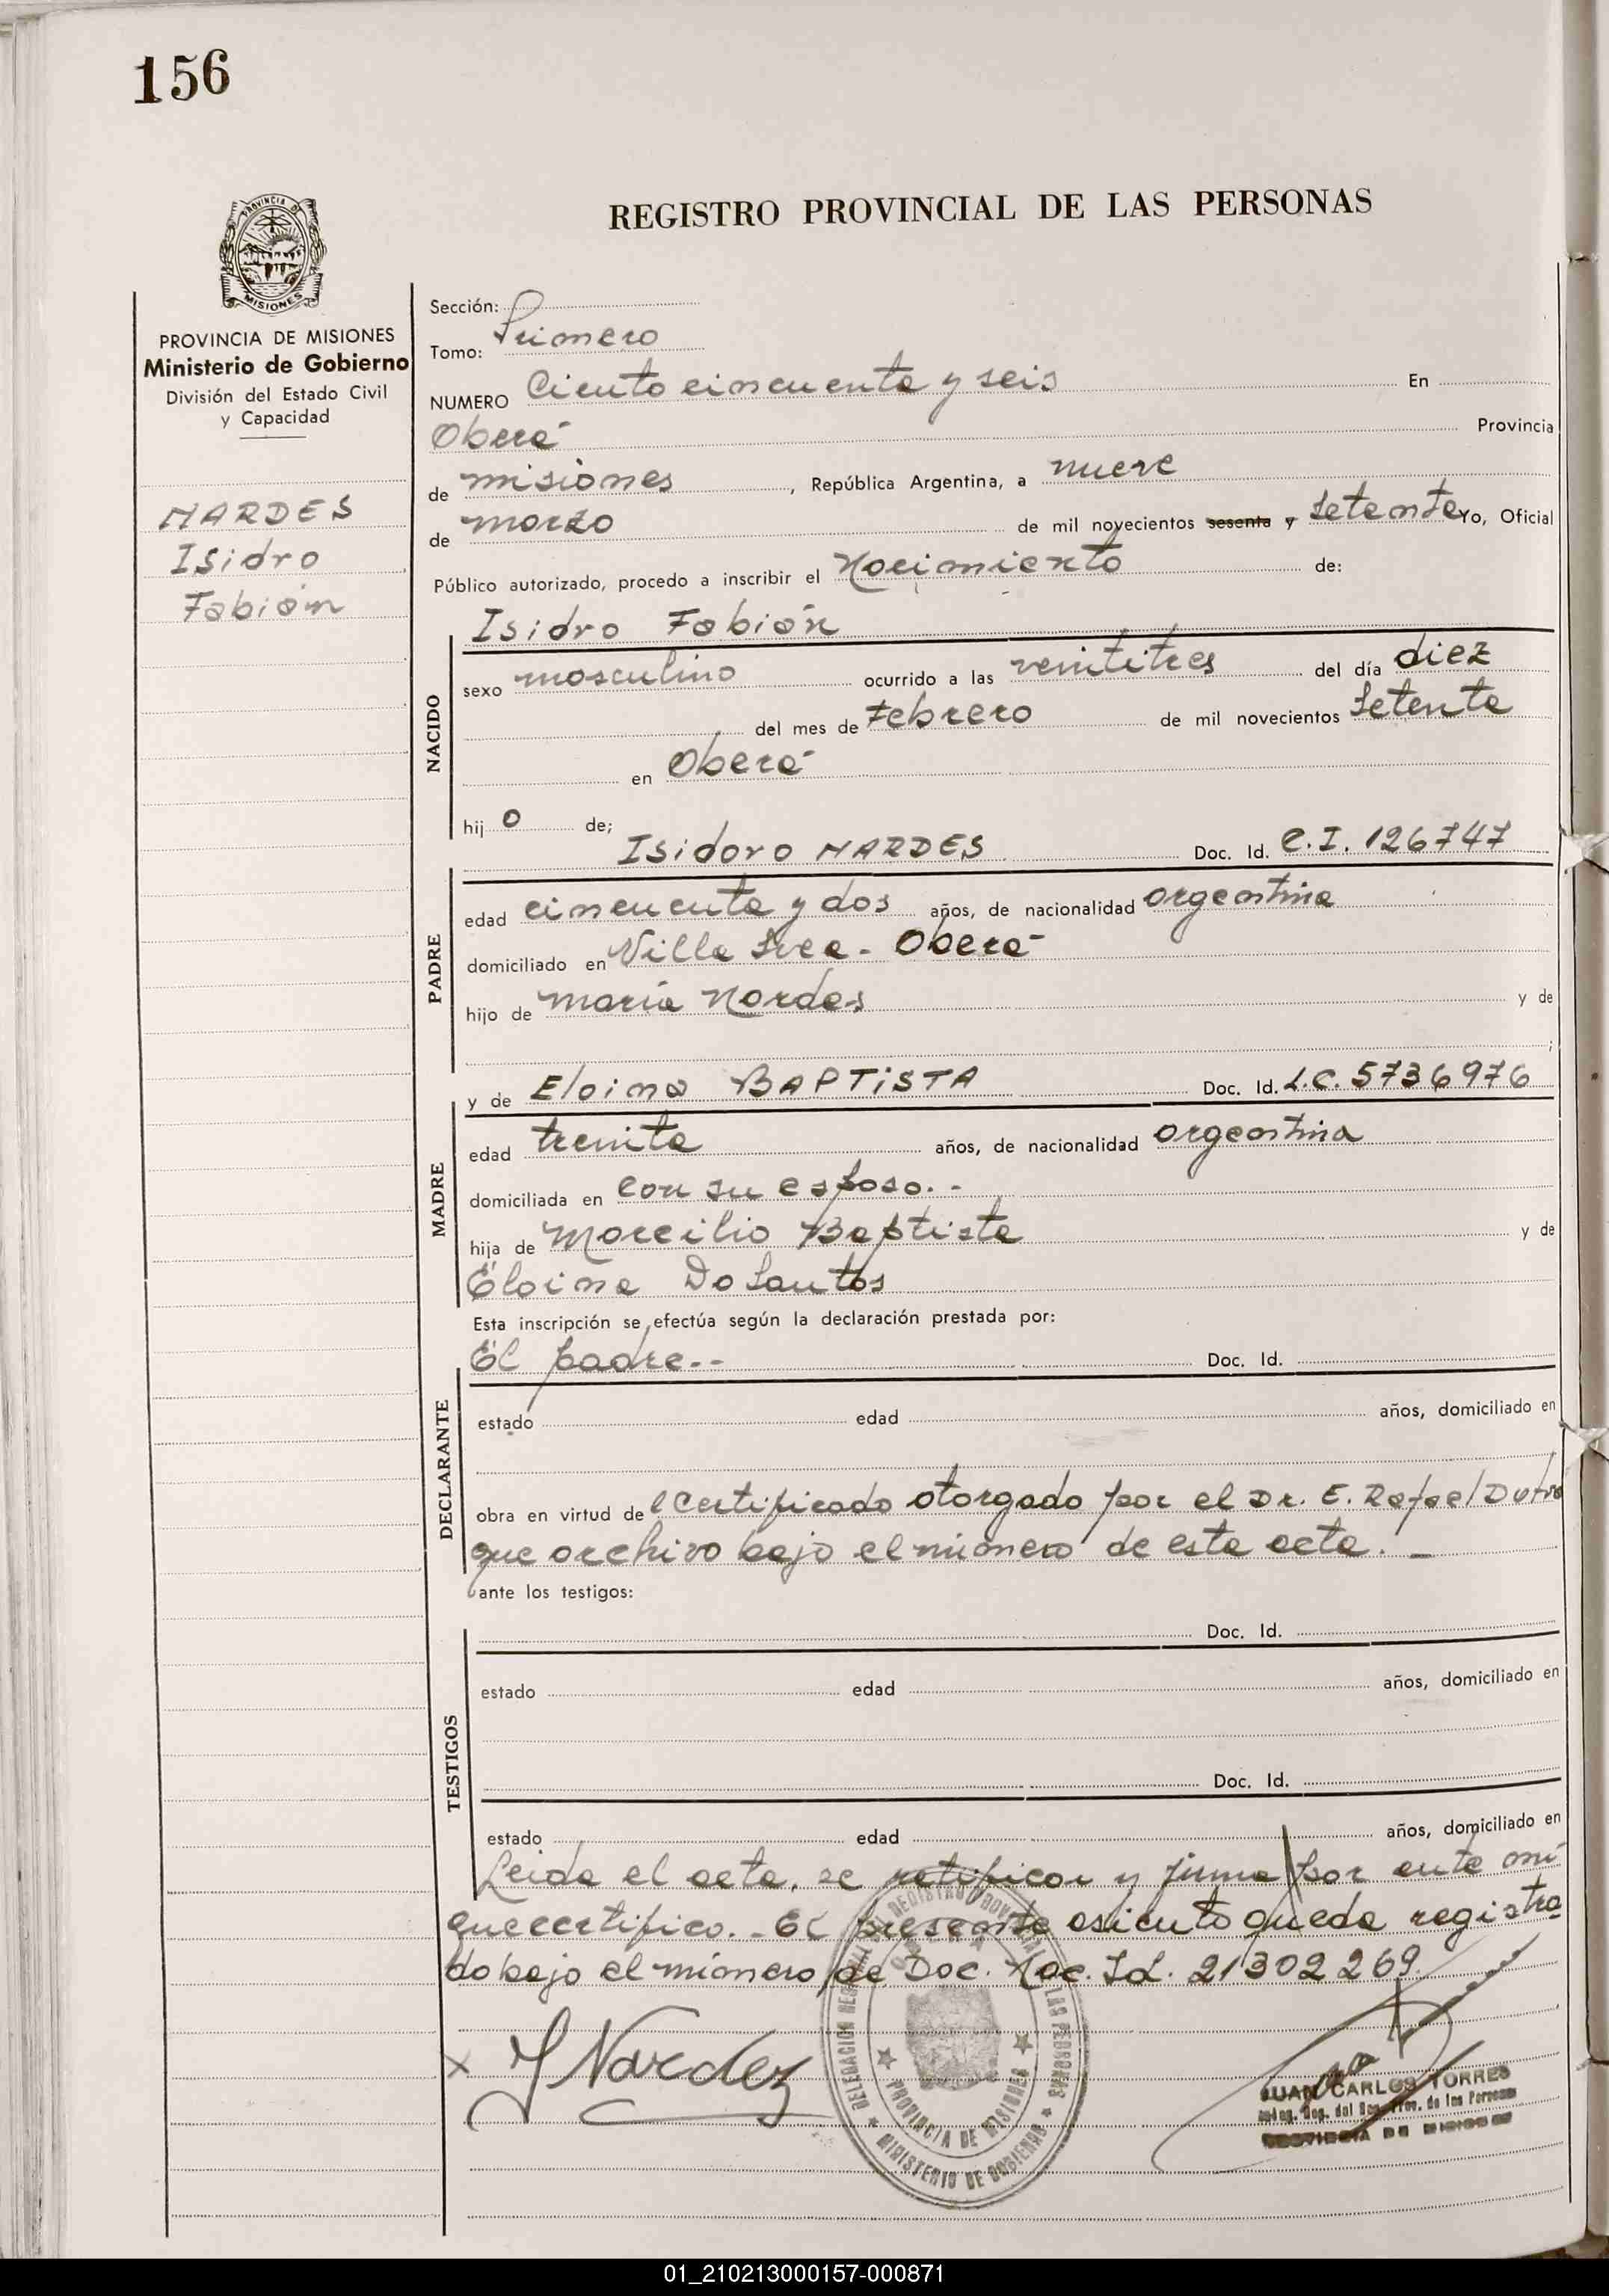 156
REGISTRO PROVINCIAL DE LAS PERSONAS
PROVINCIA DE
MISIONES
PROVINCIA DE MISIONES
Ministerio de Gobierno
División del Estado Civil
y Capacidad
NARDES
Isidro
Fabián
Sección:
Tomo: Primero
NUMERO Ciento cincuenta y seis En
Oberá Provincia
de misiones, República Argentina, a nueve
de marzo de mil novecientos sesenta y setenta Yo, Oficial
Público autorizado, procedo a inscribir el Nacimiento de:
Isidro Fabián
NACIDO
sexo masculino ocurrido a las veintitres del día diez
del mes de Febrero de mil novecientos setenta
en Oberá
hijo de;
Isidoro NARDES Doc. Id. C.I. 126747
PADRE
edad cincuenta y dos años, de nacionalidad argentina
domiciliado en Villa Svea - Oberá
hijo de María Nardes y de
y de Eloina BAPTISTA Doc. Id. L.C. 5736976
MADRE
edad treinta años, de nacionalidad argentina
domiciliada en con su esposo. -
hija de Marcilio Baptista y de
Eloina Do Santos
Esta inscripción se efectúa según la declaración prestada por:
El padre.-- Doc. Id.
DECLARANTE
estado edad años, domiciliado en
obra en virtud de l certificado otorgado por el Dr. E. Rafael Dutra
que archivo bajo el número de esta acta. -
ante los testigos:
Doc. Id.
TESTIGOS
estado edad años, domiciliado en
Doc. Id.
estado edad años, domiciliado en
Leida el acta, se ratifican y firma por ante mi
que certifico. - El presente asiento queda registra
do bajo el número de Doc. Nac. Id. 21302269.
x I Nardez
DELEGACION DEL REGISTRO PROVINCIAL DE LAS PERSONAS
PROVINCIA DE MISIONES
MINISTERIO DE GOBIERNO
JUAN CARLOS TORRES
Reg. del Prov. de las Personas
PROVINCIA DE MISIONES
01_210213000157-000871